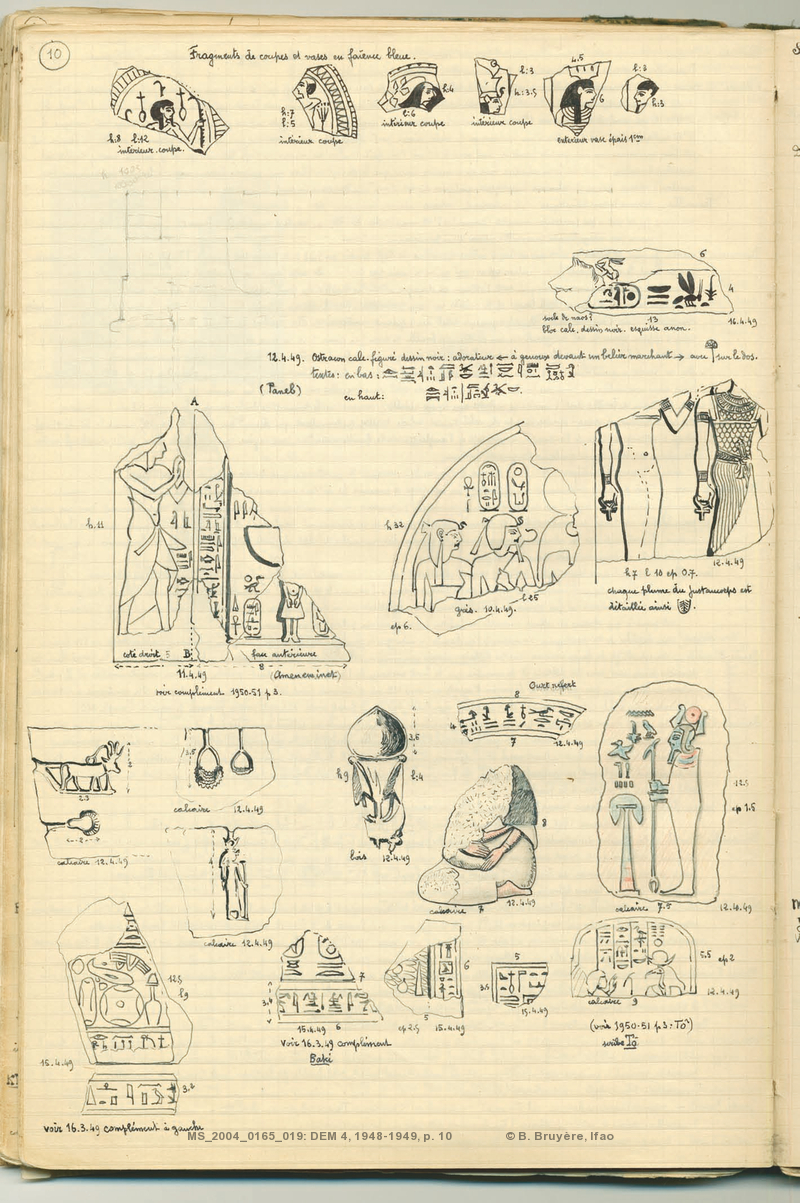 10
Fragments de coupes et vases en faïence bleue.
h:8 l:12
intérieur coupe.
h:7
l:5
intérieur coupe
h:4
l:6
intérieur coupe
l:3
h:3.5
intérieur coupe
4.5
6
exterieur vase épais 1cm
l:3
h:3
6
4
13
16.4.49
sorte de naos?
bloc calc. dessin noir. esquisse anon.
12.4.49. Ostracon calc. figuré dessin noir: adorateur ← à genoux devant un bélier marchant → avec sur le dos.
textes: en bas:
(Paneb)
en haut:
A
h.11
coté droit 5 B
face antérieure
8
11.4.49
voir complément 1950.51 p 3.
h 32
l 25
grès. 10.4.49.
ep 6.
h 7 l 10 ep 0.7.
12.4.49
chaque plume du justaucorps est
détaillée ainsi
2
2.3
2
calcaire 12.4.49
3.5
calcaire 12.4.49
4
calcaire 12.4.49
3.5
h 9
l:4
bois 12.49
8
4
7
12.4.49
8
calcaire 7
12.4.49
12.5
ep 1.5
calcaire 7.5
12.10.49
12.5
l 9
15.4.49
3.2
voir 16.3.49 complément à gauche
7
3.4
15.4.49 6
Voir 16.3.49 complément
Baki
6
5
ep 2.5 15.4.49
5
3.5
15.4.49
5.5 ep 2
calcaire 9
12.4.49
(voir 1950-51 p3: Tô)
scribe Tô
MS_2004_0165_019: DEM 4, 1948-1949, p. 10 © B. Bruyère, Ifao